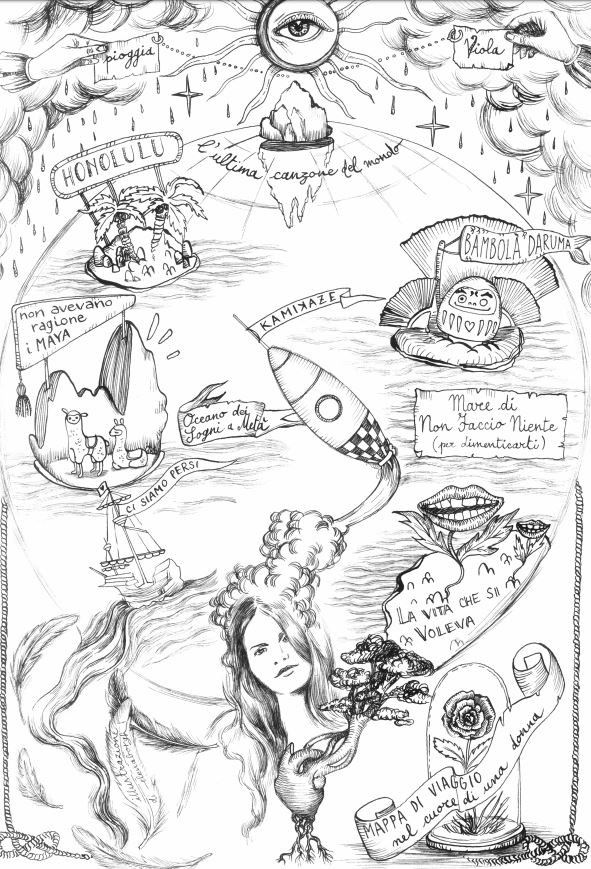 pioggia
Viola
l'ultima canzone del mondo
HONOLULU
BAMBOLA DARUMA
non avevano
ragione
i MAYA
KAMIKAZE
Oceano dei
Sogni a Metà
Mare di
Non Faccio Niente
(per dimenticarti)
CI SIAMO PERSI
LA VITA CHE SI
VOLEVA
MAPPA DI VIAGGIO
nel cuore di una donna
illustrazioni